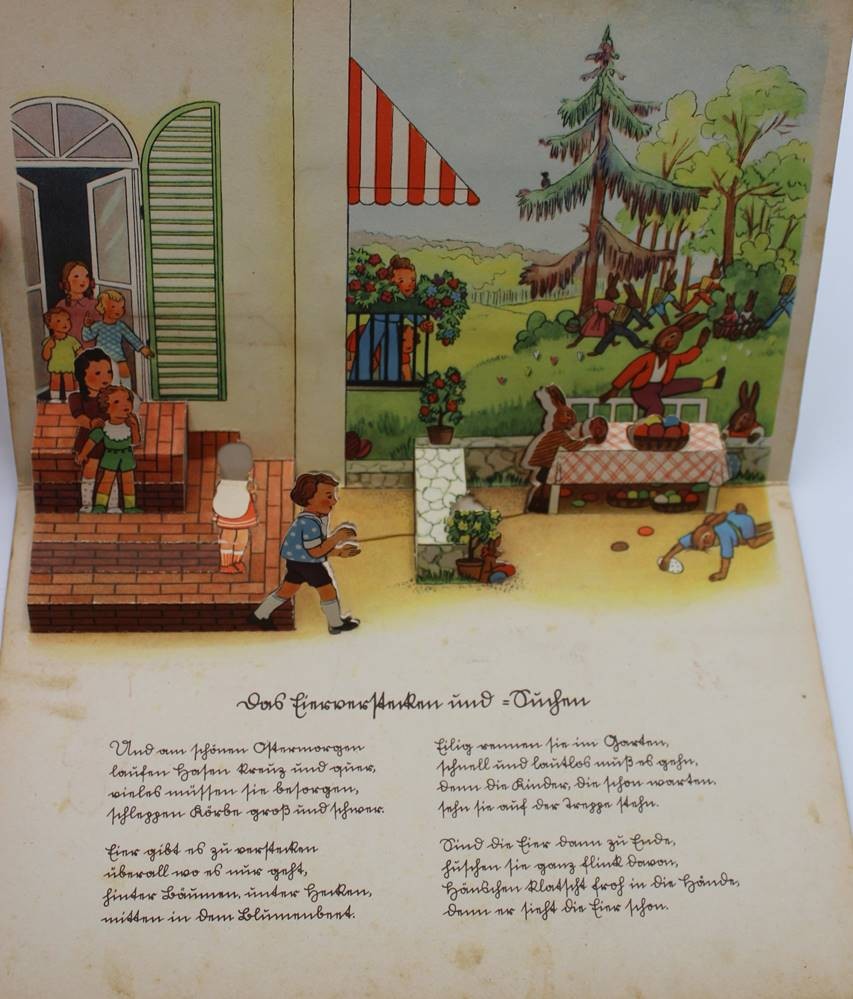 Das Eierverstecken und =Suchen
Und am schönen Ostermorgen
laufen Hasen kreuz und quer,
vieles müssen sie besorgen,
schleppen Körbe groß und schwer.
Eier gibt es zu verstecken
überall wo es nur geht,
hinter Bäumen, unter Hecken,
mitten in dem Blumenbeet.
Eilig rennen sie im Garten,
schnell und lautlos muß es gehn,
denn die Kinder, die schon warten.
sehn sie auf der Treppe stehn.
Sind die Eier dann zu Ende,
huschen sie ganz flink davon,
Hänschen klatscht froh in die Hände,
denn er sieht die Eier schon.